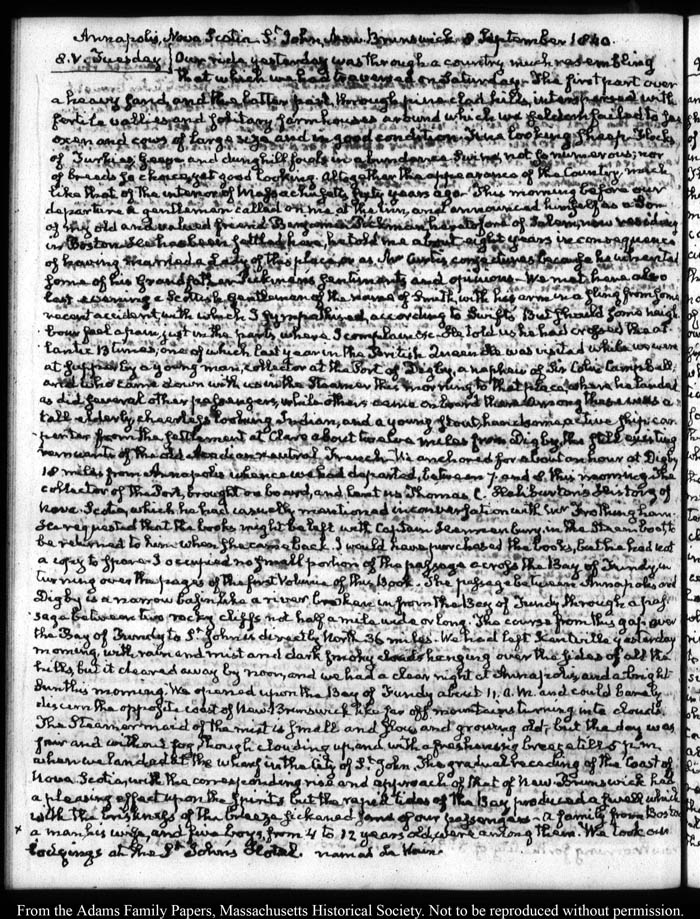 Annapolis, Nova Scotia. St John, New Brunswick 8 September 1840.
8. V. Tuesday Our ride yesterday was through a country much resembling
that which we had traversed on Saturday. The first part over
a heavy sand, and the latter part through pine clad hills, interspersed with
fertile vallies and solitary farmhouses around which we seldom failed to see
oxen and cows of large size and in good condition. Fine looking sheep. Flocks
of Turkies, Geese, and dunghill fowls in abundance. Swine not so numerous; nor
of breeds so choice, yet good looking. Altogether the appearance of the Country, much
like that of the interior of Massachusetts forty years ago. This morning before our
departure a gentleman called on me at the Inn, and announced himself as a Son
of my old and valued friend Benjamin Pickman heretofore of Salem, now residing
in Boston. He has been settled here, he told me about eight years in consequence
of having married a Lady of this place, or as Mr Curtis conjectures because he inherited
some of his Grandfather Pickman's sentiments and opinions. We met here also
last evening a Scottish Gentleman of the name of Smith, with his arm in a sling from some
recent accident, with which I sympathised, according to Swift's But should some neigh
bour feel a pain, just in the parts where I complain &c. He told us he had crossed the at
lantic times, one of which last year in the British Queen. He was visited while we were
at supper by a young man, collector at the Port of Digby, a nephew of Sir Colin Campbell;
and who came down with us in the Steamer this morning to that place, where he landed
as did several other passengers, while others came on board there. Among these was a
tall elderly, cheerless looking Indian, and a young stout, handsome, active Ship-car
penter from the settlement at Clare about twelve miles from Digby, the still existing
remnants of the old Acadian neutral French. We anchored for about an hour at Digby
18 miles from Annapolis whence we had departed, between 7. and 8. this morning. The
collector of the Port, brought on board, and lent us Thomas C. Haliburton's History of
Nova Scotia, which he had casually mentioned in conversation with Mr Frothingham.
He requested that the books might be left with Captain in the Steam boat to
be returned to him when she came back. I would have purchased the books, but he had not
a copy to spare. I occupied no small portion of the passage across the Bay of Fundy in
turning over the pages of the first Volume of this Book. The passage between Annapolis and
Digby is a narrow basin like a river, broken in from the Bay of Fundy through a pas
sage between two rocky cliffs not half a mile wide or long. The course from this gap over
the Bay of Fundy to St John is directly North 36 miles. We had left Kentville yesterday
morning with rain and mist and dark smoky clouds hanging over the sides of all the
hills, but it cleared away by noon, and we had a clear night at Annapolis, and a bright
Sun this morning. We opened upon the Bay of Fundy about 11. A.M. and could barely
discern the opposite coast of New Brunswick like far off mountains turning into clouds.
The Steamer maid of the mist is small and slow and growing old; but the day was
fair and without fog though clouding up, and with a freshening breeze till 5 P.M.
when we landed at the wharf in the City of St. John. The gradual receding of the Coast of
Nova Scotia with the corresponding rise and approach of that of New Brunswick had
a pleasing effect upon the spirits but the rapid tides of the Bay produced a swell which
with the briskness of the breeze sickened some of our passengers. A family from Boston
a man his wife, and five boys, from 4 to 12 years old, were among them. We took our
lodgings at the St John's Hotel.
From the Adams Family Papers, Massachusetts Historical Society. Not to be reproduced without permission.